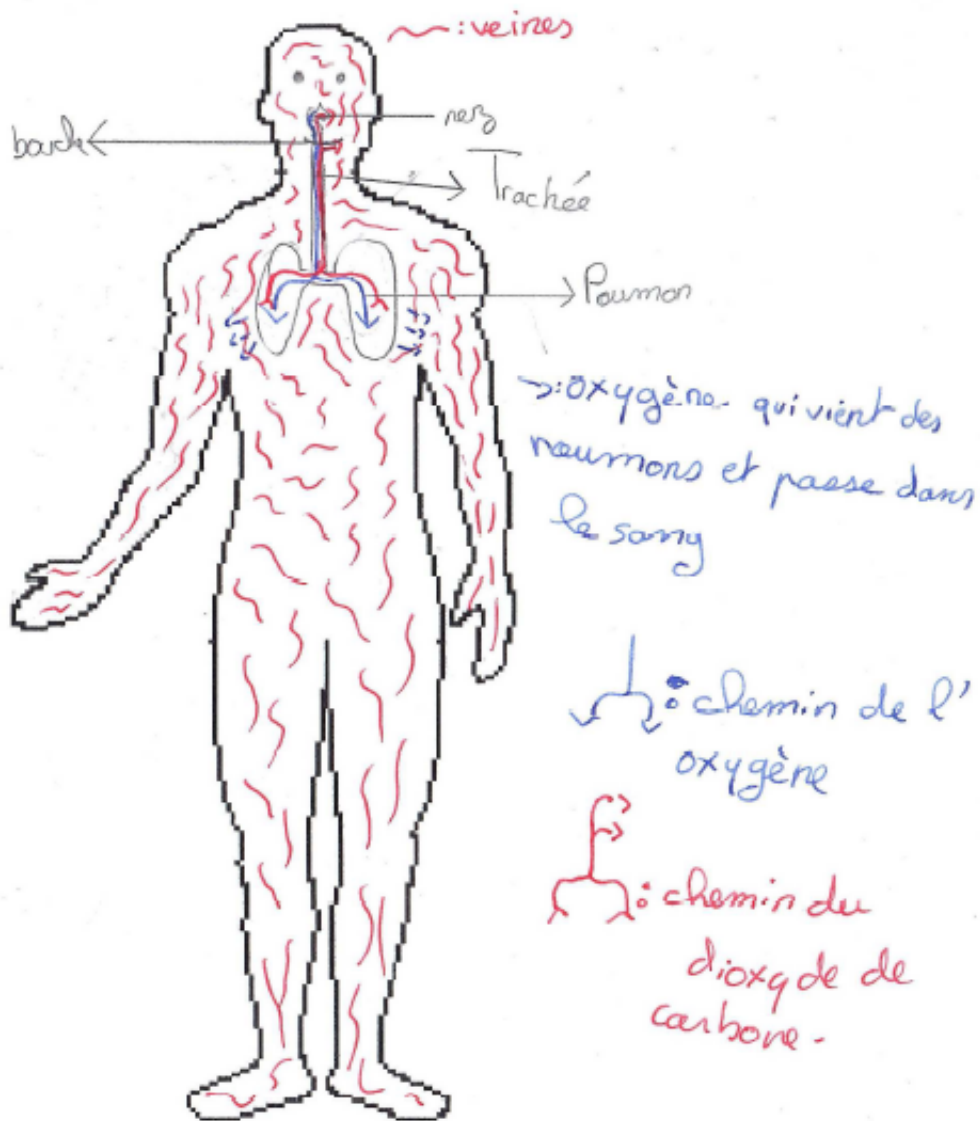 : veines
nez
bouche
Trachée
Poumon
: oxygène qui vient des
noeumons et passe dans
le sang
: chemin de l'
oxygène
: chemin du
dioxyde de
carbone.